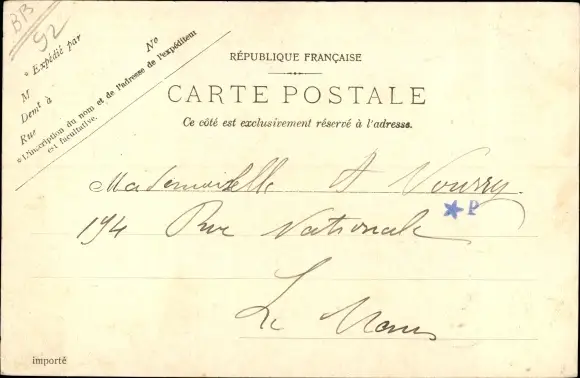 BB
92
* Expédié par
M
Nº
Demt à
Rue
* L'inscription du nom et de l'adresse de l'expéditeur
est facultative.
RÉPUBLIQUE FRANÇAISE
CARTE POSTALE
Ce côté est exclusivement réservé à l'adresse.
Mademoiselle A Vourry
P
194 Rue Nationale
Le Mans
importé